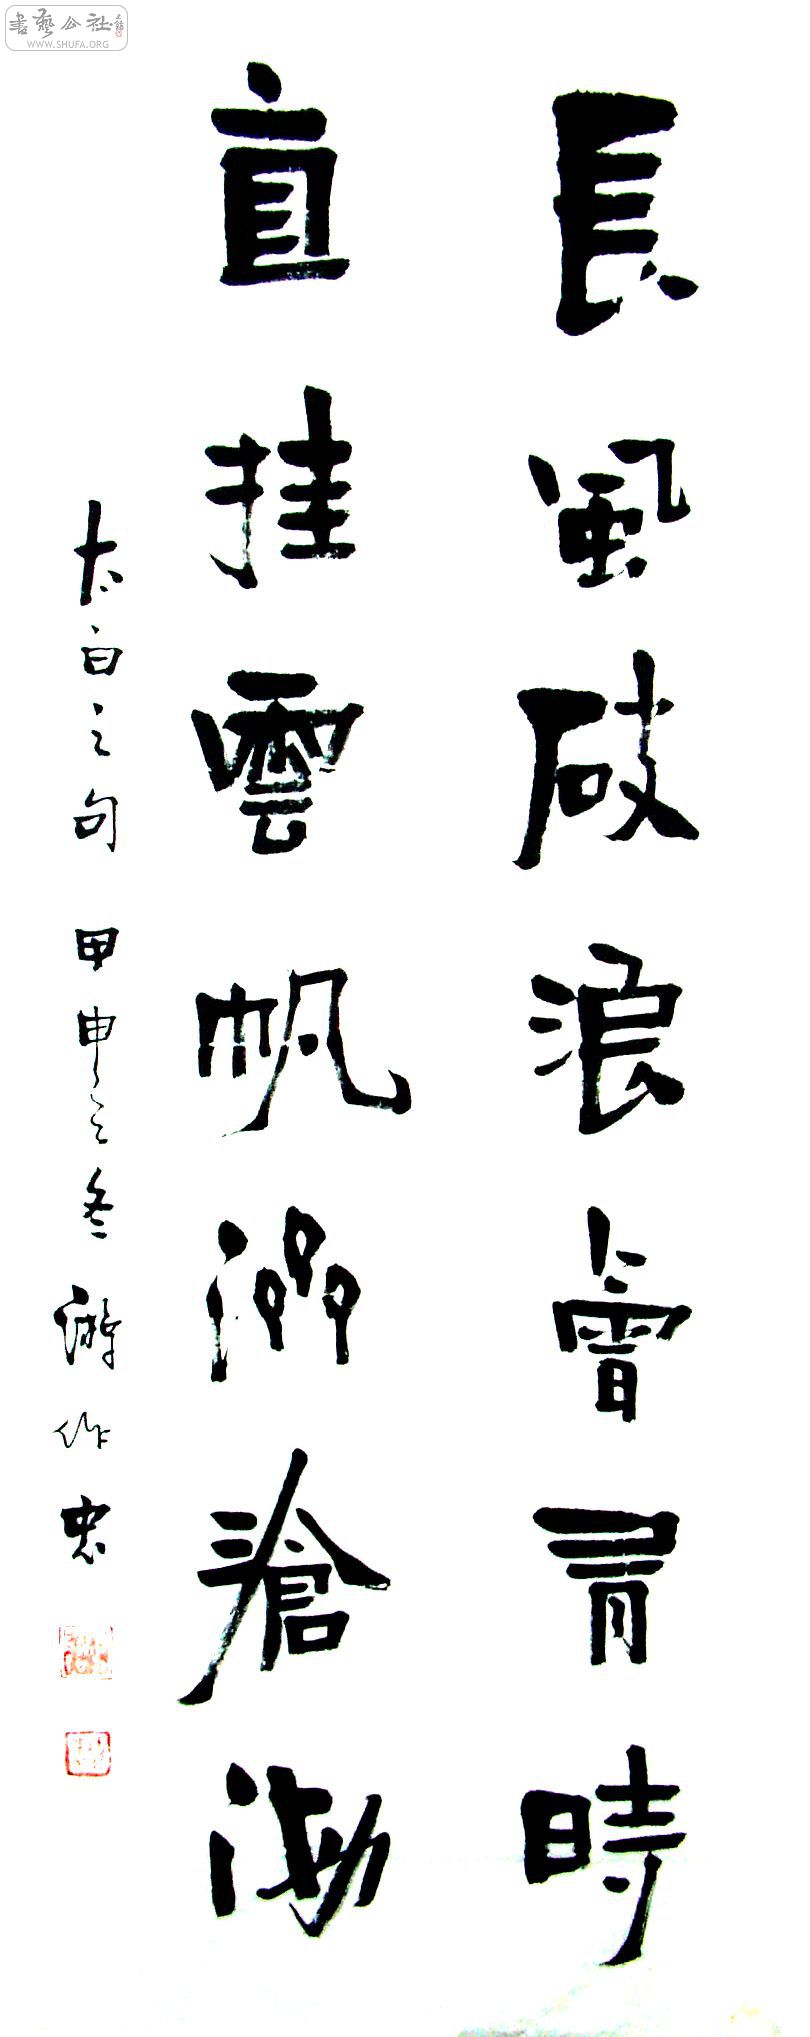 書藝公社
WWW.SHUFA.ORG
長風破浪會有時
直挂雲帆濟滄海
太白之句 甲申之冬 游作忠